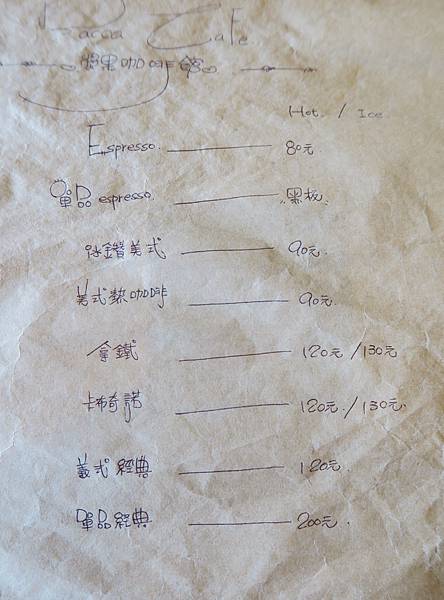 Bacca Cafe
漿果咖啡館
Hot / Ice
Espresso 80元
單品 espresso. "黑板"
冰鑽美式 90元
美式熱咖啡 90元.
拿鐵 120元 / 130元
卡布奇諾 120元. / 130元.
義式經典 120元.
單品經典 200元.